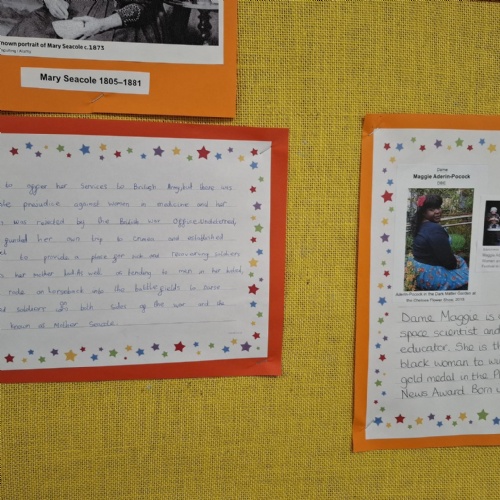 nown portrait of Mary Seacole c.1873
Mary Seacole 1805–1881
to offer her services to British Army, but there was
prejudice against women in medicine and her
was rejected by the British War Office. Undeterred,
funded her own trip to Crimea and established
to provide a place for sick and recovering soldiers
her mother had its work as tending to men in her hotel,
rode on horseback into the battlefields to nurse
soldiers on both sides of the war and
known as Mother Seacole
Dame
Maggie Aderin-Pocock
OBE
Aderin-Pocock in the Dark Matter Garden at
the Chelsea Flower Show, 2015
Dame Maggie is
space scientist and
educator. She is th
black woman to w
gold medal in the P
News Award. Born